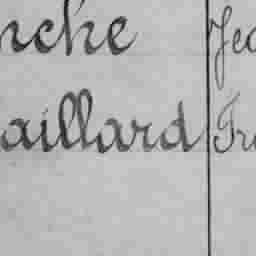 nche Jea
aillard Fra